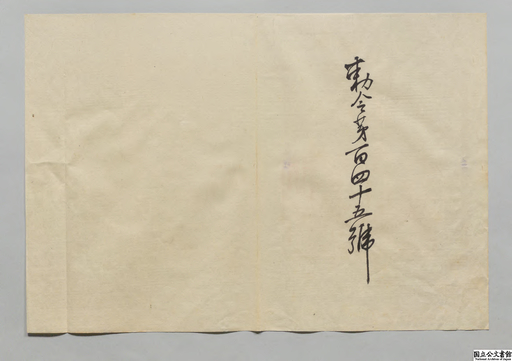 勅令第百四十五號
国立公文書館
National Archives of Japan